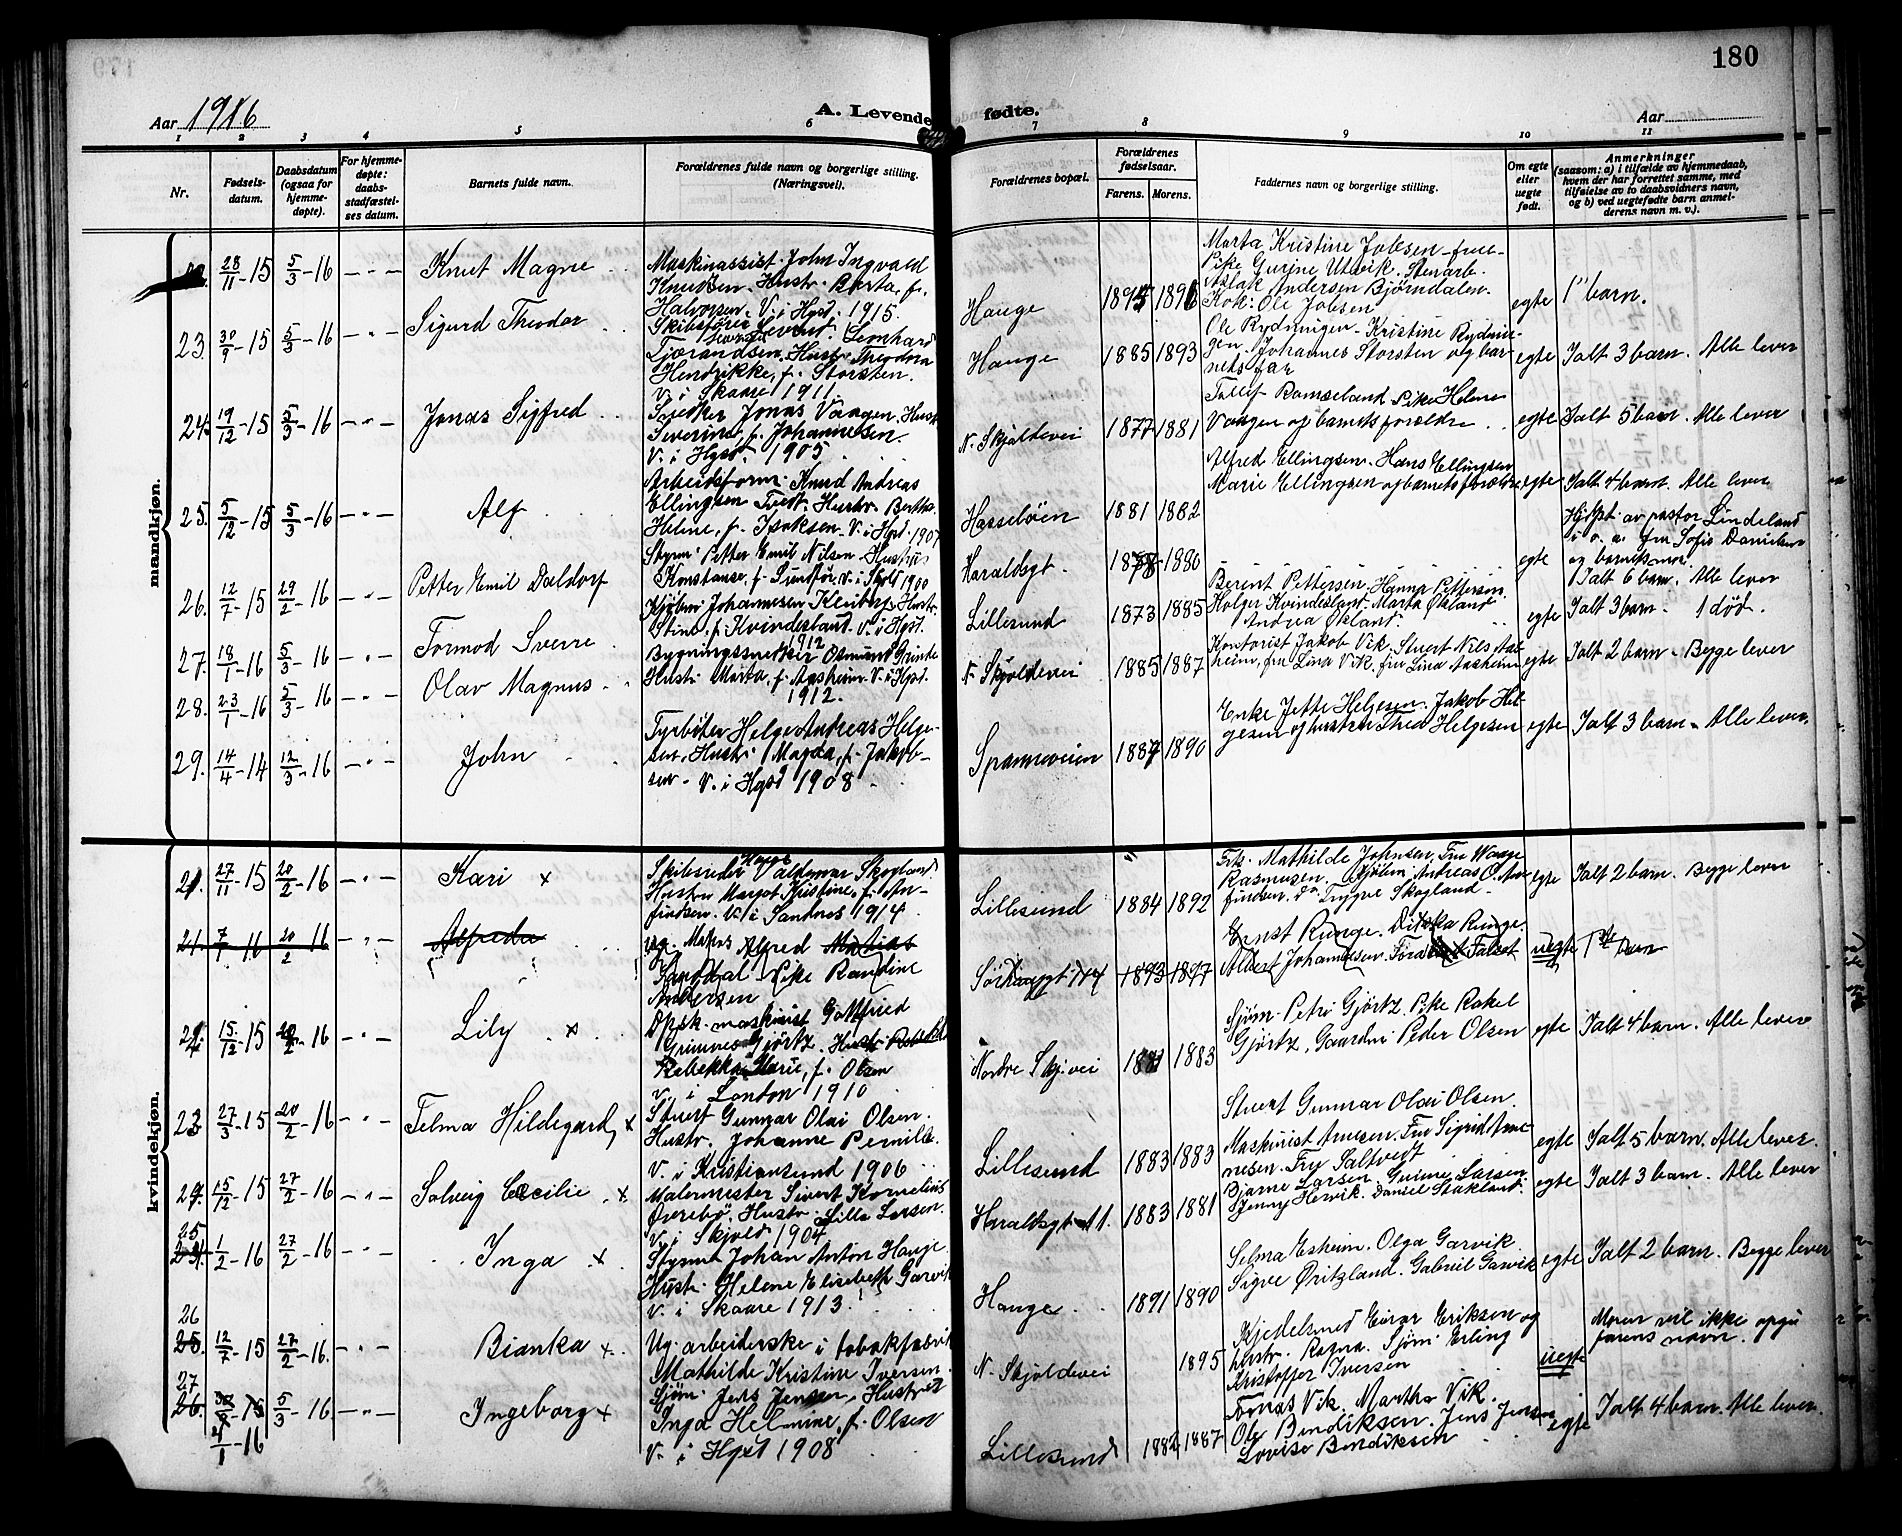 180
Aar 1916
A. Levende fødte.
Aar
1 2 3 4 5 6 7 8 9 10 11
Nr.
Fødsels-
datum.
Daabsdatum
(ogsaa for
hjemme-
døpte).
For hjemme-
døpte:
daabs-
stadfæstel-
ses datum.
Barnets fulde navn.
Forældrenes fulde navn og borgerlige stilling.
(Næringsvei).
Forældrenes bopæl.
Forældrenes
fødselsaar.
Farens. Morens.
Faddernes navn og borgerlige stilling.
Om egte
eller
uegte
født.
Anmerkninger
(saasom: a) i tilfælde av hjemmedaab,
hvem der har forrettet samme, med
tilføielse av to daabsvidners navn,
og b) ved uegtefødte barn anmel-
derens navn m. v.).
mandkjøn.
28/11-15 5/3-16 Knut Magne
Maskinassist. John Ingvald
Knudsen. Hustr. Berta, f.
Halvorsen. V. i Hgsd. 1915.
Hauge 1895 1896
Marta Kristine Jobsen
Pike Gurine Utvik. Stenarb.
Aslak Andersen Bjørndalen.
Kok: Ole Jobsen
egte 1ste barn.
23. 30/9-15 5/3-16 Sigurd Theodor
Skibsfører Leonhard
Tjørandsen. Hustr. Theodora
Hendrikke, f. Storsten.
V. i Skaare 1911.
Hauge 1885 1893
Ole Rydningen. Kristine Rydnin-
gen. Johannes Storsten og bar-
nets far
egte Ialt 3 barn. Alle lever
24. 19/12-15 5/3-16 Jonas Sigfred
Snedker Jonas Vaagen. Hustr.
Severine, f. Johannesen.
V. i Hgsd. 1905.
N. Skjoldevei 1877 1881
Tollef Ramseland Pike Helene
Vaagen og barnets forældre
egte Ialt 5 barn. Alle lever
25. 5/12-15 5/3-16 Alf
Arbeidsform. Knud Andreas
Ellingsen Tvedt. Hustr. Berthe
Heline, f. Isaksen. V. i Hgsd. 1907
Hasseløen 1881 1882
Alfred Ellingsen. Hans Ellingsen
Marie Ellingsen og barnets forældre
egte Ialt 4 barn. Alle lever
26. 12/7-15 29/2-16 Petter Emil Daldorf
Styrm. Petter Emil Nilsen. Hustru
Konstanse, f. Sundfør. V. i Skjold 1900
Haraldsgt. 1880
egte
Hj.døpt av pastor Lindeland
og barnets mor.
Ialt 6 barn. Alle lever
27. 18/1-16 5/3-16 Tormod Sverre
Kjøbm. Johannesen Hustr.
Stine, f. Kvindesland. V. i Hgst.
1912
Lillesund 1873 1885
Berent Pettersen. Hanna Pettersen
Holger Kvindesland. Marta Økland
Andrea Økland
egte Ialt 3 barn. 1 død.
28. 23/1-16 5/3-16 Olav Magnus
Bygningssnedker Osmund Grinde
Hustr. Marta, f. Aasheim. V. i Hgst.
1912.
N. Skjoldevei 1885 1887
Kontorist Jakob Vik. Stuert Nils Aas-
heim, fru Lina Vik. fru Lina Aasheim
egte Ialt 2 barn. Begge lever
29. 14/4-14 12/3-16 John
Fyrbøter Helge Andreas Helge-
sen. Hustr. Magda, f. Jakob-
sen. V. i Hgsd 1908
Spanneveien 1887 1890
Enke Jette Helgesen. Jakob Hel-
gesen og hustru Thea Helgesen
egte Ialt 3 barn. Alle lever.
kvindekjøn.
21. 27/11-15 20/2-16 Kari x
Skibsreder Valdemar Skogland
Hustru Margot Kristine, f. An-
findsen. V. i Sandnes 1914.
Lillesund 1884 1892
Frk. Mathilde Johnsen. Fru Waage
Rasmussen. Kjøbm. Andreas O. An-
findsen. Trygve Skogland
egte Ialt 2 barn. Begge lever
21. 7/7-16 20/2-16 Alfreda
Alfred Mathias
Sanddal Pike Randine
Andersen
1893 1897
Ernst Runge. Runge.
Albert Johannesen.
uegte 1ste barn
15/12-15 Lily x
maskinist Gottfried
Gjørtz. Hustr.
Rebekka Marie, f. Olsen
V. i London 1910
Nordre Skj.vei 1881 1883
Sjøm. Petri Gjørtz. Pike Rakel
Gjørtz. Gaardm. Peder Olsen
egte Ialt 4 barn. Alle lever
23 27/3-15 20/2-16 Telma Hildegard, x
Stuert Gunnar Olai Olsen.
Hustr. Johanne Pernille.
V. i Kristiansund 1906
Lillesund 1883 1883
Stuert Gunnar Olai Olsen.
Maskinist Arnesen. Fru Sigrid Arne-
nesen. Fru Saltvedt
egte Ialt 5 barn. Alle lever.
24. 15/12-15 27/2-16 Solveig Cecilie x
Malermester Sivert Kornelius
Øverebø. Hustr. Lilla Larsen.
V. i Skjold 1904
Haraldsgt. 11. 1883 1881
Bjarne Larsen. Gunne Larsen
Jenny Hervik. Daniel Stakland.
egte Ialt 3 barn. Alle lever
25
1/2-16 27/2-16 Inga x
Styrm. Johan Anton Hauge
Hustr. Helene Elisebeth Garvik
V. i Skaare 1913.
Hauge. 1891 1890
Selma Esheim. Olga Garvik
Sigve Øritzland. Gabriel Garvik
egte Ialt 2 barn. Begge lever
26
25. 12/7-15 27/2-16. Bianka x
Ug. arbeiderske i tobakfabrik
Mathilde Kristine Iversen
N. Skjoldevei 1895
Kjedelsmed Einar Eriksen og
hustr. Ragna. Sjøm. Erling
Kristoffer Iversen
uegte
Moren vil ikke opgi
farens navn.
27
26. 5/3-16 Ingeborg x
1-16
Sjøm. Jens Jensen. Hustru
Inga Helmine, f. Olsen
V. i Hgsd 1908
Lillesund 1882 1887
Tomas Vik. Martha Vik.
Ole Bendiksen. Jens Jensen
Lovise Bendiksen
egte Ialt 4 barn. Alle lever.